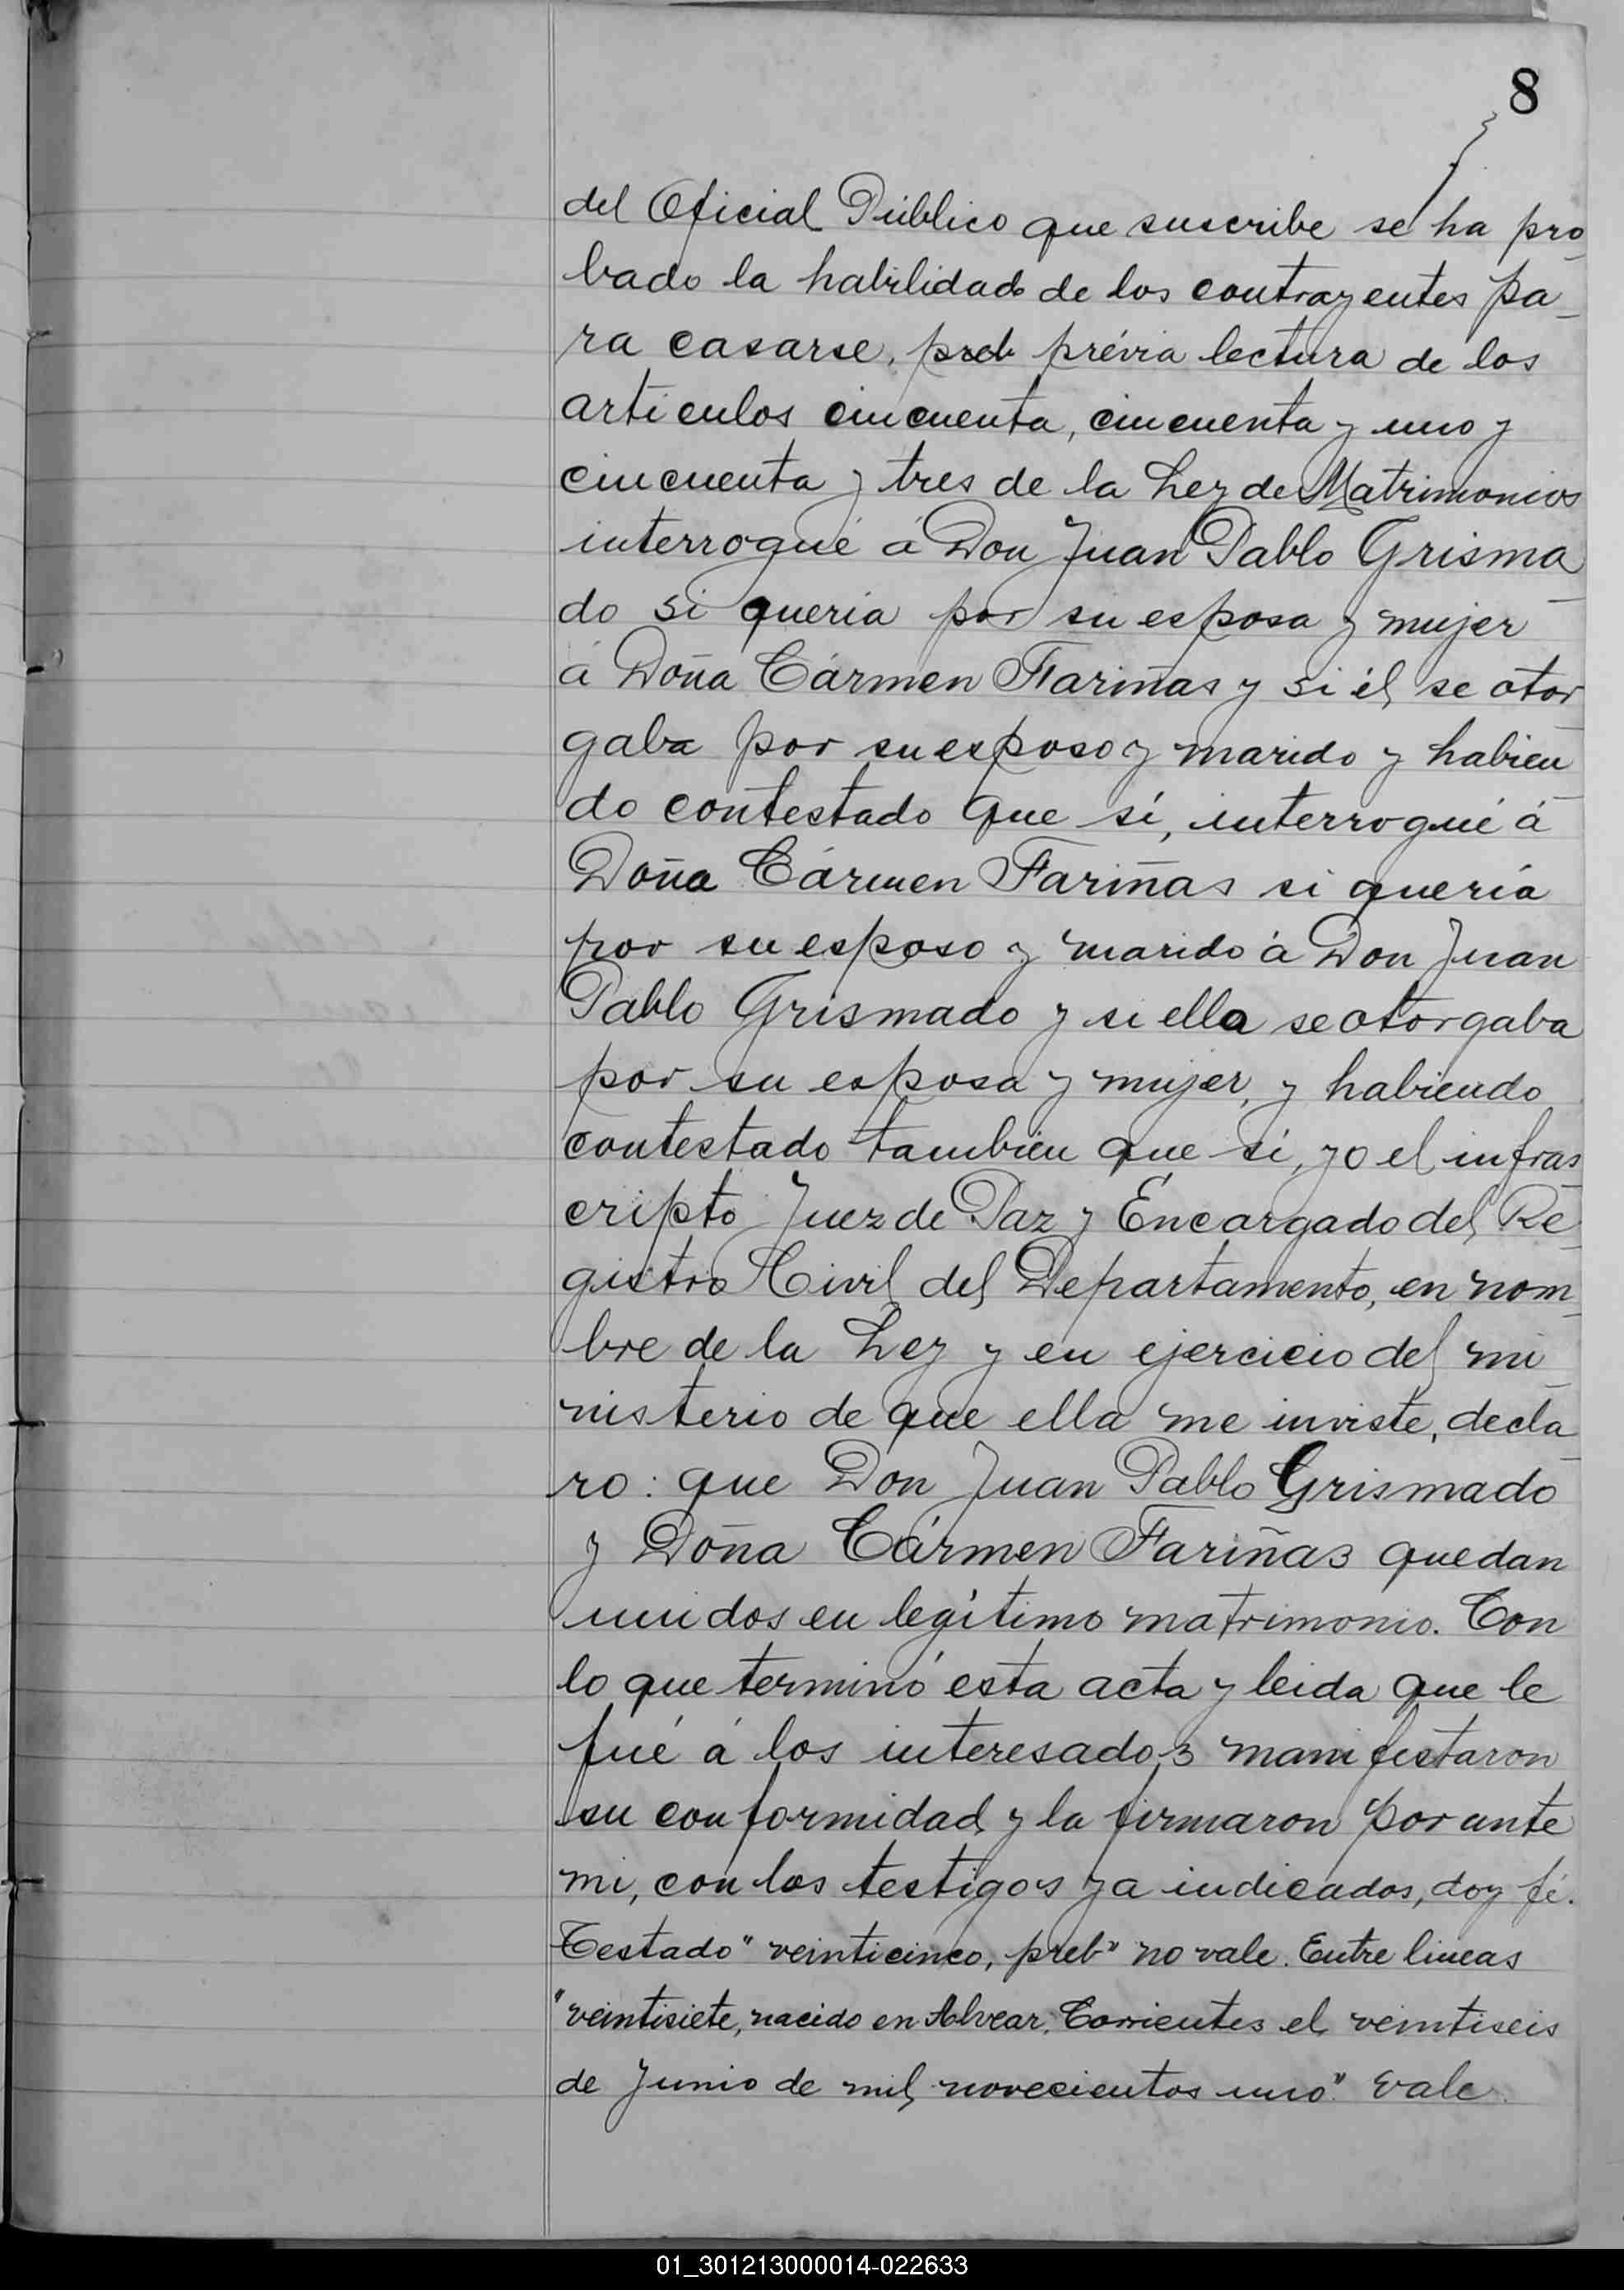 8
del Oficial Público que suscribe se ha pro
bado la habilidad de los contrayentes pa_
ra casarse, preb prévia lectura de los
articulos cincuenta, cincuenta y uno y
cincuenta y tres de la Ley de Matrimonios
interrogué á Don Juan Pablo Grisma_
do si queria por su esposa y mujer
á Doña Cármen Fariñas y si él se otor_
gaba por su esposo y marido y habien_
do contestado que si, interrogué á
Doña Cármen Fariñas si quería
por su esposo y marido á Don Juan
Pablo Grismado y si ella se otorgaba
por su esposa y mujer, y habiendo
contestado tambien que si, yo el infras_
cripto Juez de Paz y Encargado del Re_
gistro Civil del Departamento, en nom_
bre de la Ley y en ejercicio del mi_
nisterio de que ella me inviste, decla_
ro: que Don Juan Pablo Grismado
y Doña Cármen Fariñas quedan
unidos en legítimo matrimonio. Con
lo que terminó esta acta y leida que le
fué á los interesados manifestaron
su conformidad y la firmaron por ante
mi, con los testigos ya indicados, doy fé.
Testado "veinticinco, preb" no vale. Entre lineas
"veintisiete, nacido en Alvear, Corrientes el veintiseis
de Junio de mil novecientos uno" vale
01_301213000014-022633